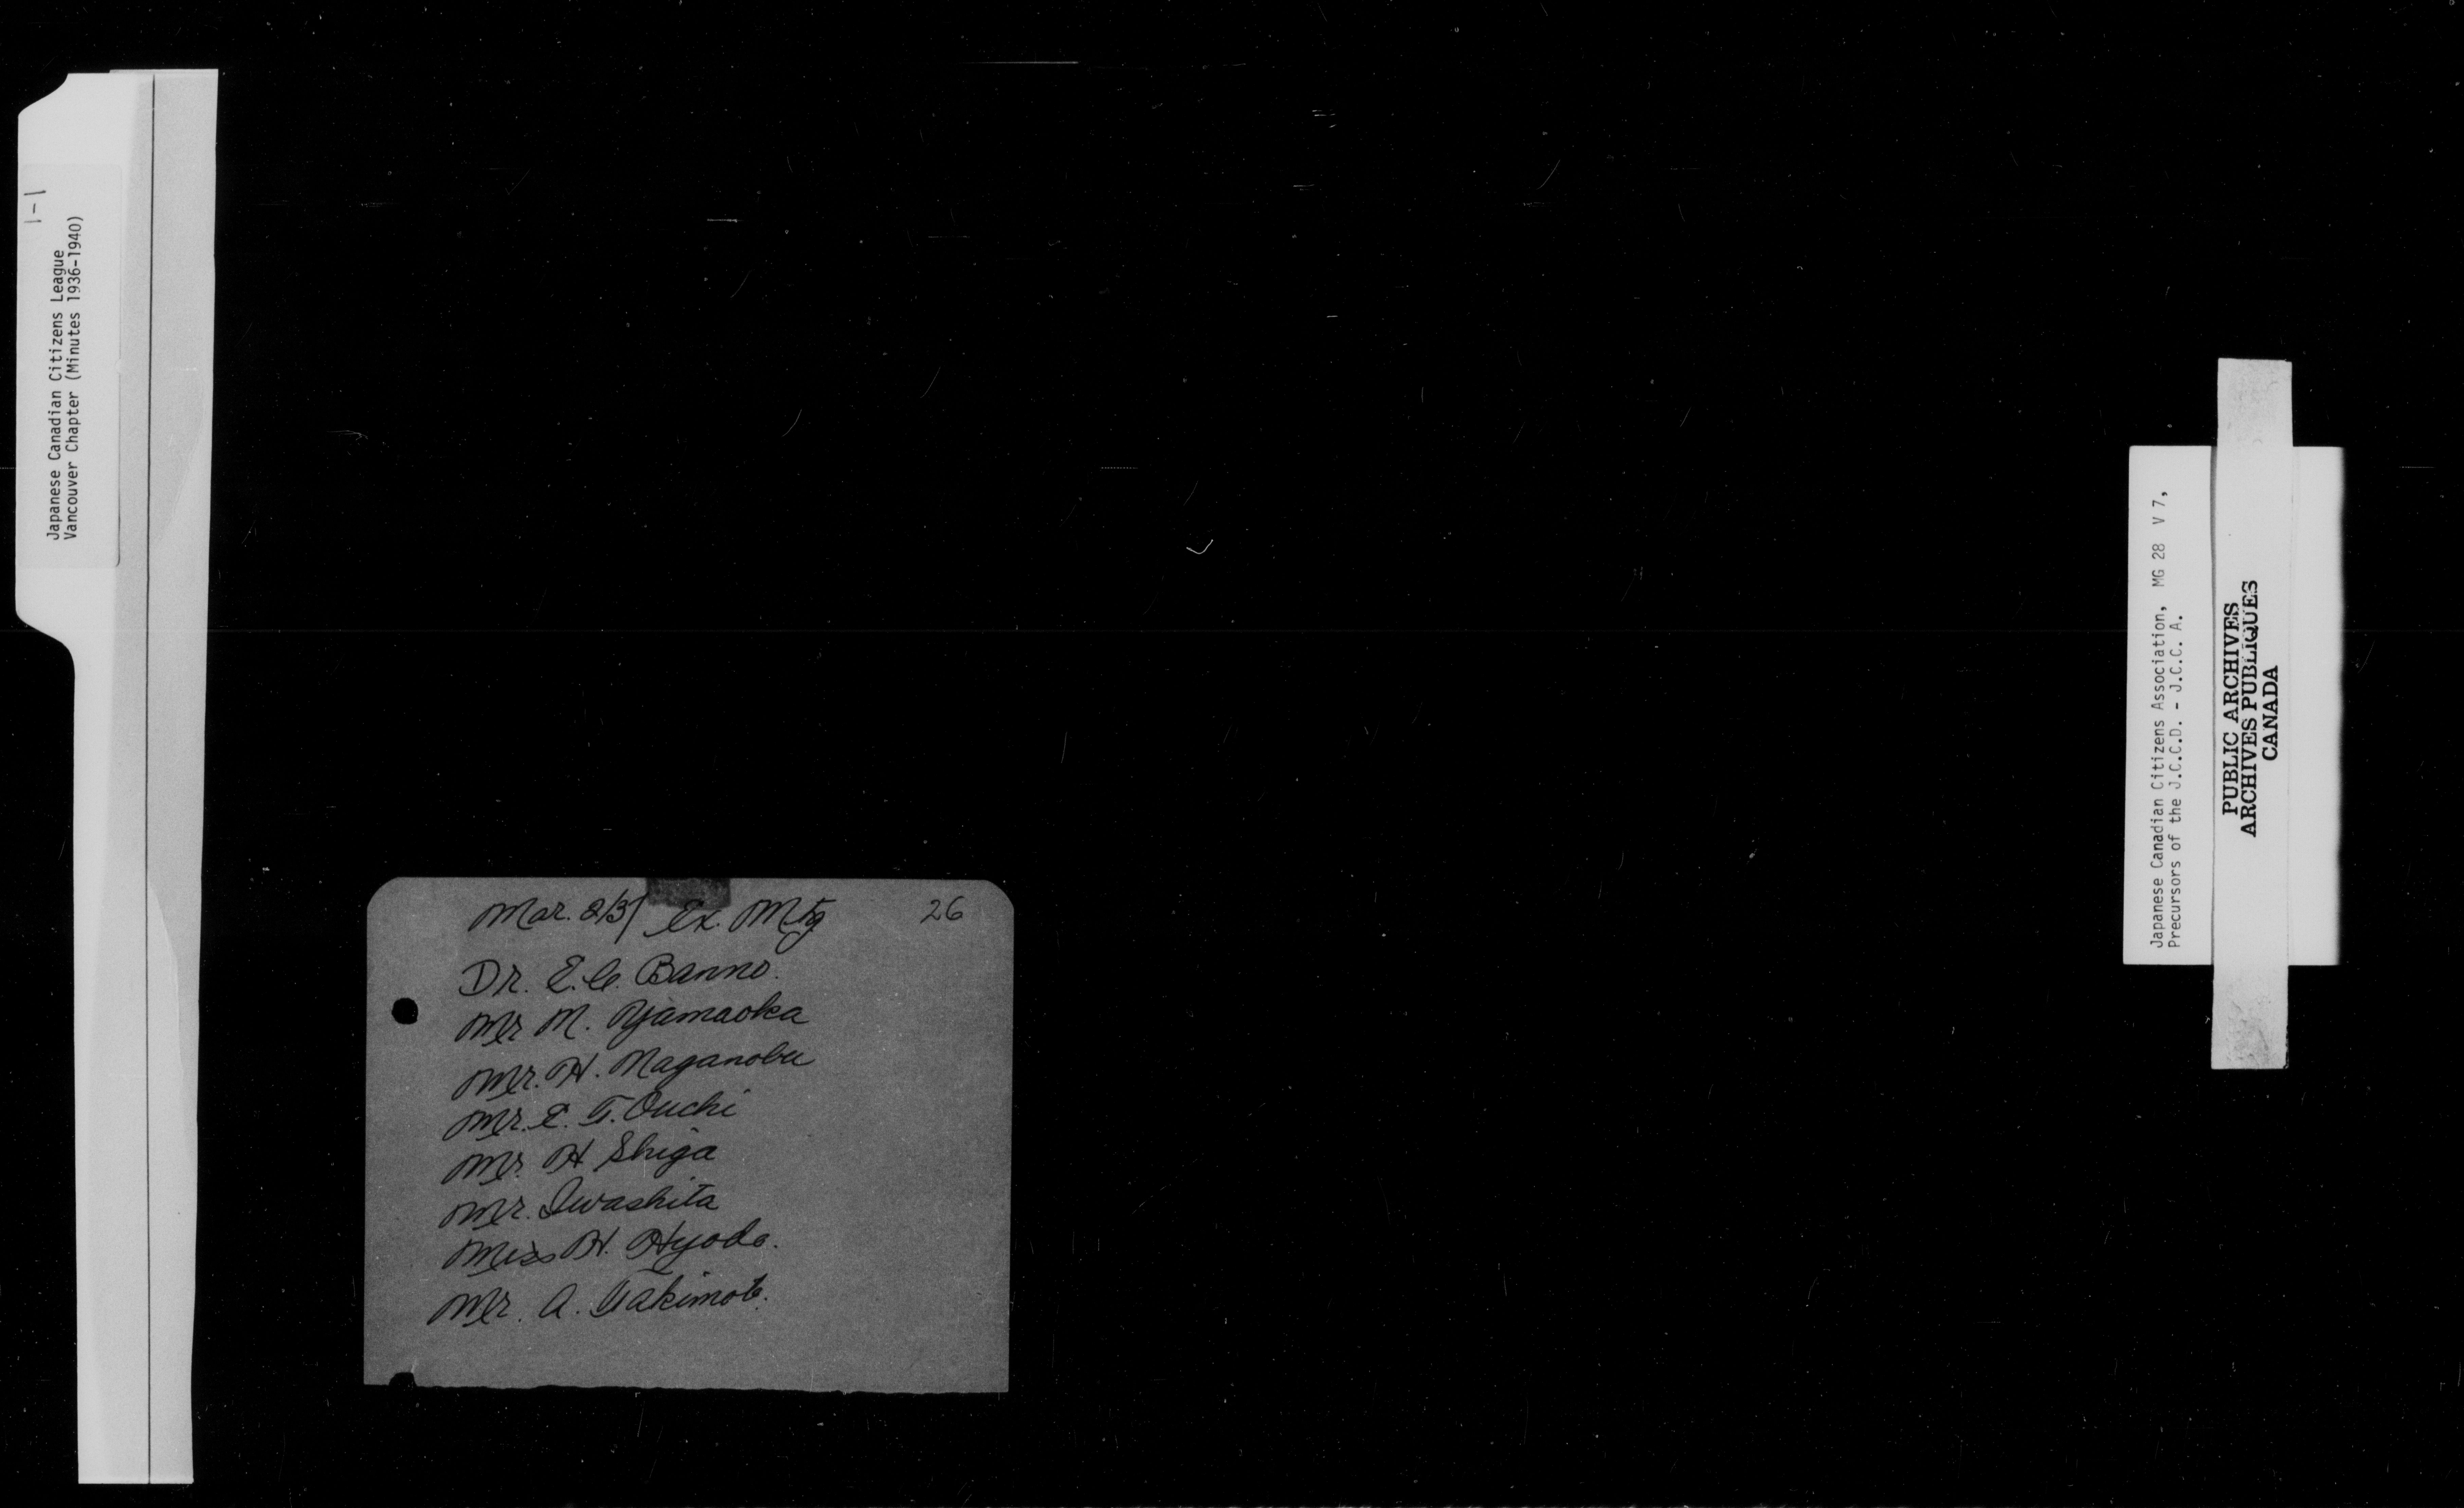 1-1
Japanese Canadian Citizens League
Vancouver Chapter (Minutes 1936-1940)
Mar. 2/37 Ex. Mtg 26
Dr. E. C. Banno.
Mr M. Yamaoka
Mr. H. Naganobu
Mr. E. T. Ouchi
Mr. H Shiga
Mr. Iwashita
Miss H. Hyodo.
Mr. A. Takimoto.
Japanese Canadian Citizens Association, MG 28 V 7,
Precursors of the J.C.C.D. - J.C.C. A.
PUBLIC ARCHIVES
ARCHIVES PUBLIQUES
CANADA